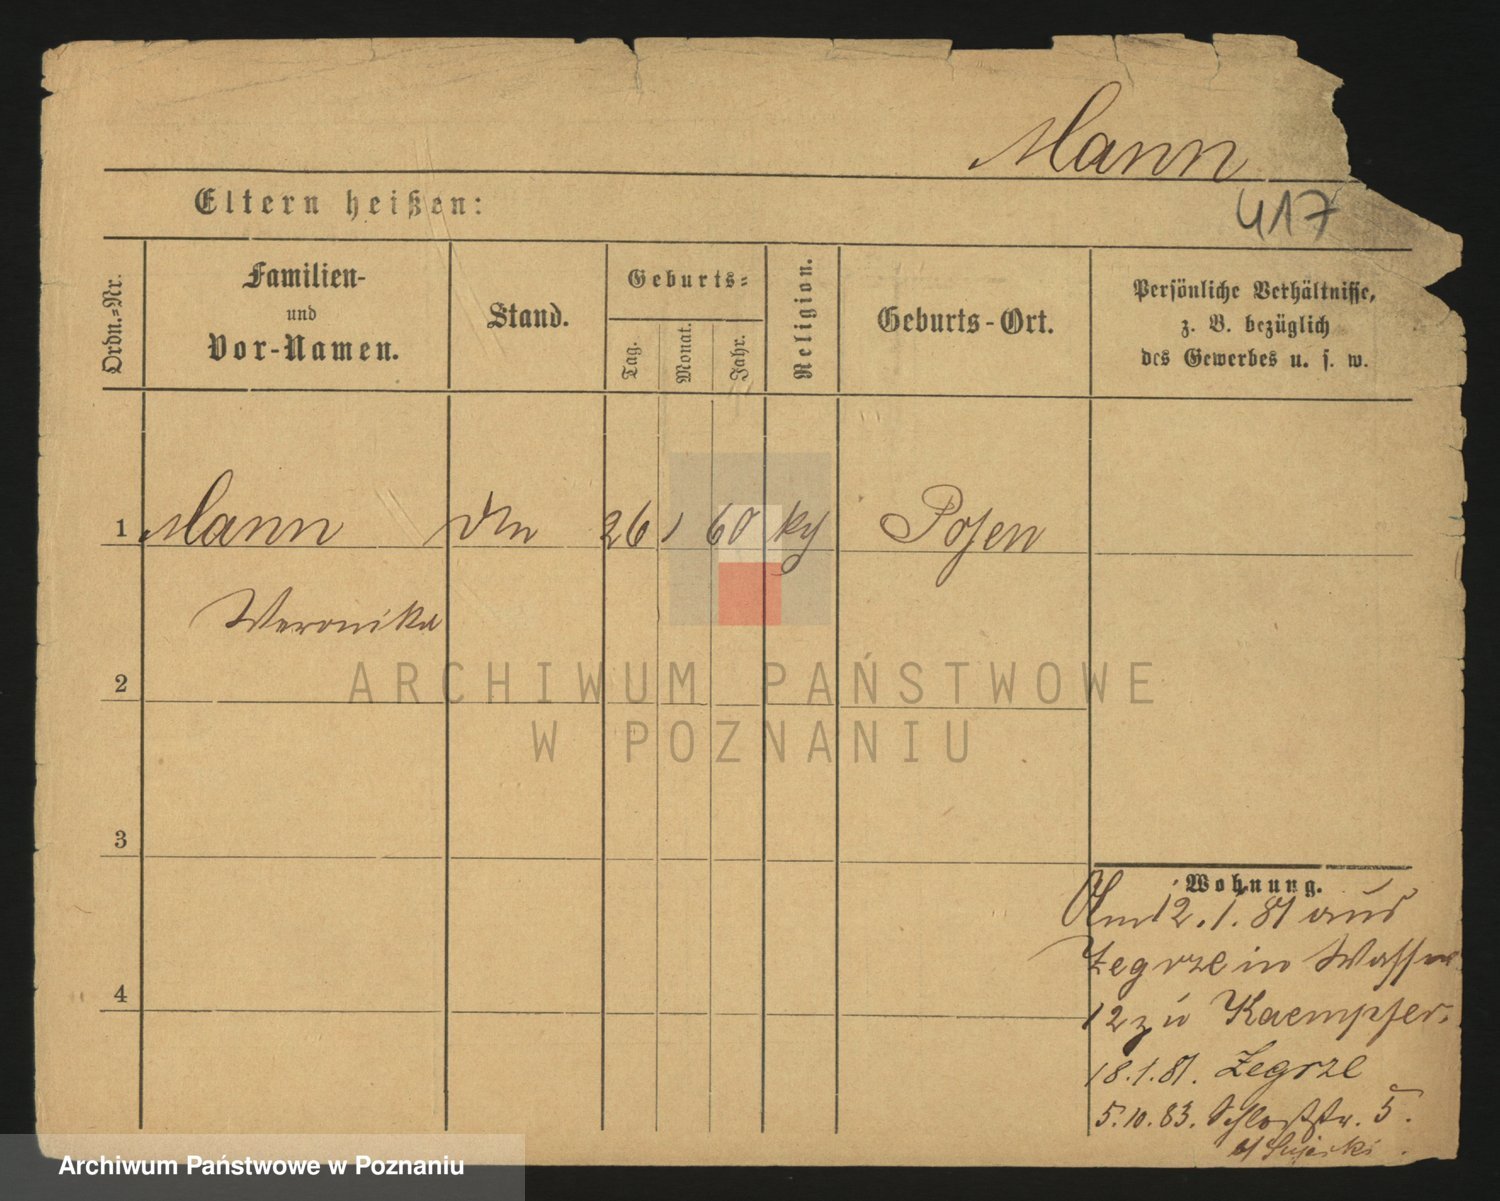 Mann
417
Eltern heißen:
Ordn.-Nr.
Familien-
und
Vor-Namen.
Stand.
Geburts-
Tag.
Monat.
Jahr.
Religion.
Geburts-Ort.
Persönliche Verhältnisse,
z. B. bezüglich
des Gewerbes u. s. w.
1 Mann 26 1 60 Posen
Veronika
2
3
4
Wohnung.
Am 12.1.81 aus
Zegrze in Wasser
12 zu Kaempfer.
18.1.81. Zegrze
5.10.83. Schloßstr. 5.
ARCHIWUM PAŃSTWOWE
W POZNANIU
Archiwum Państwowe w Poznaniu